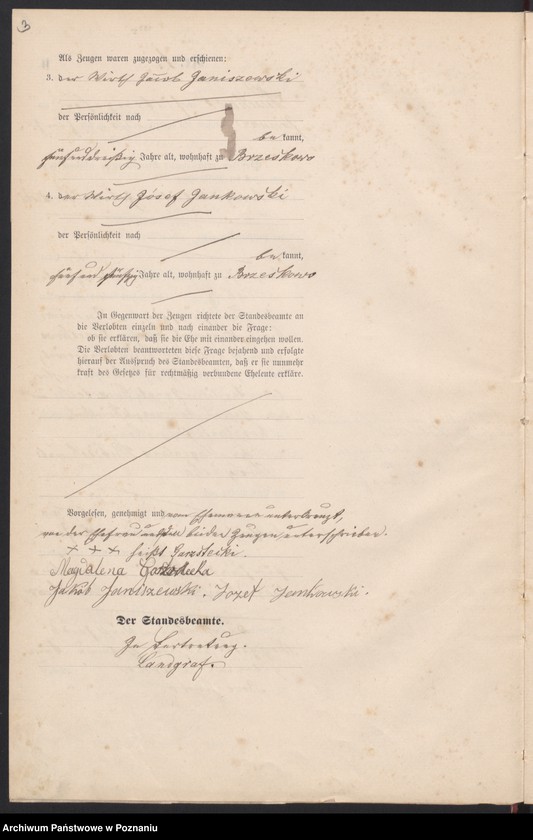 3
Als Zeugen waren zugezogen und erschienen:
3. der Wirth Jacob Janiszewski
der Persönlichkeit nach
be kannt,
fünfunddreißig Jahre alt, wohnhaft zu Brzeskowo
4. der Wirth Józef Jankowski
der Persönlichkeit nach
be kannt,
und fünfzig Jahre alt, wohnhaft zu Brzeskowo
In Gegenwart der Zeugen richtete der Standesbeamte an
die Verlobten einzeln und nach einander die Frage:
ob sie erklären, daß sie die Ehe mit einander eingehen wollen.
Die Verlobten beantworteten diese Frage bejahend und erfolgte
hierauf der Ausspruch des Standesbeamten, daß er sie nunmehr
kraft des Gesetzes für rechtmäßig verbundene Eheleute erkläre.
Vorgelesen, genehmigt und vom Ehemanne unterkreuzt,
von der Ehefrau und den beiden Zeugen unterschrieben.
+ + + heißt
Magdalena
Jakób Janiszewski. Jozef Jankowski.
Der Standesbeamte.
In Vertretung.
Landgraf.
Archiwum Państwowe w Poznaniu